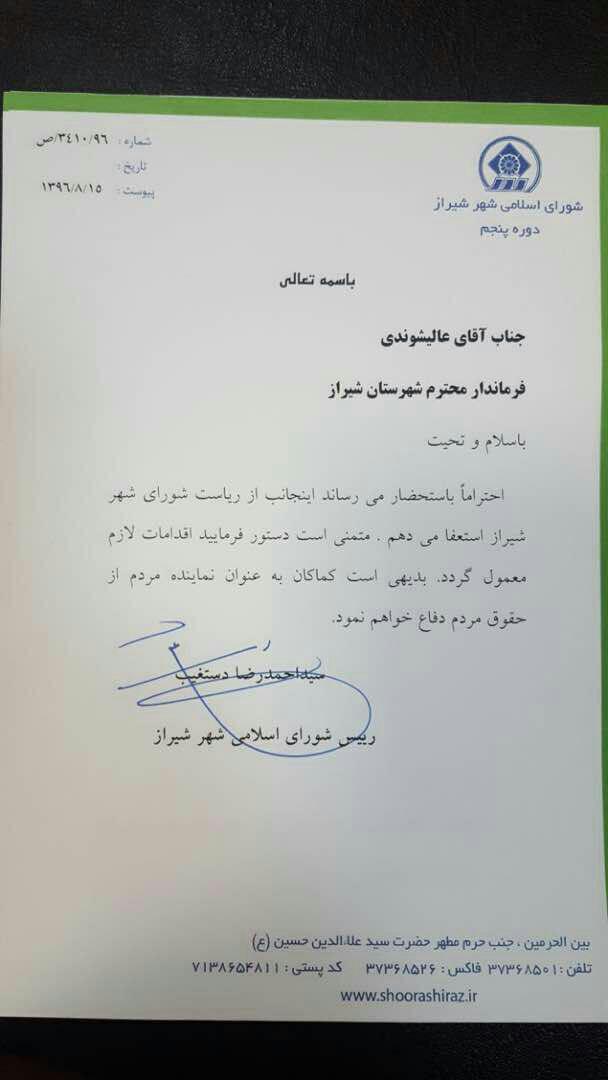 شورای اسلامی شهر شیراز
دوره پنجم
شماره : ۳۴۱۰/۹۶/ص
تاریخ :
پیوست : ۱۳۹۶/۸/۱۵
باسمه تعالی
جناب آقای عالیشوندی
فرماندار محترم شهرستان شیراز
باسلام و تحیت
احتراماً باستحضار می رساند اینجانب از ریاست شورای شهر
شیراز استعفا می دهم . متمنی است دستور فرمایید اقدامات لازم
معمول گردد. بدیهی است کماکان به عنوان نماینده مردم از
حقوق مردم دفاع خواهم نمود.
سیداحمدرضا دستغیب
رییس شورای اسلامی شهر شیراز
بین الحرمین ، جنب حرم مطهر حضرت سید علاءالدین حسین (ع)
تلفن : ۳۷۳۶۸۵۰۱ فاکس : ۳۷۳۶۸۵۲۶ کد پستی : ۷۱۳۸۶۵۴۸۱۱
www.shoorashiraz.ir